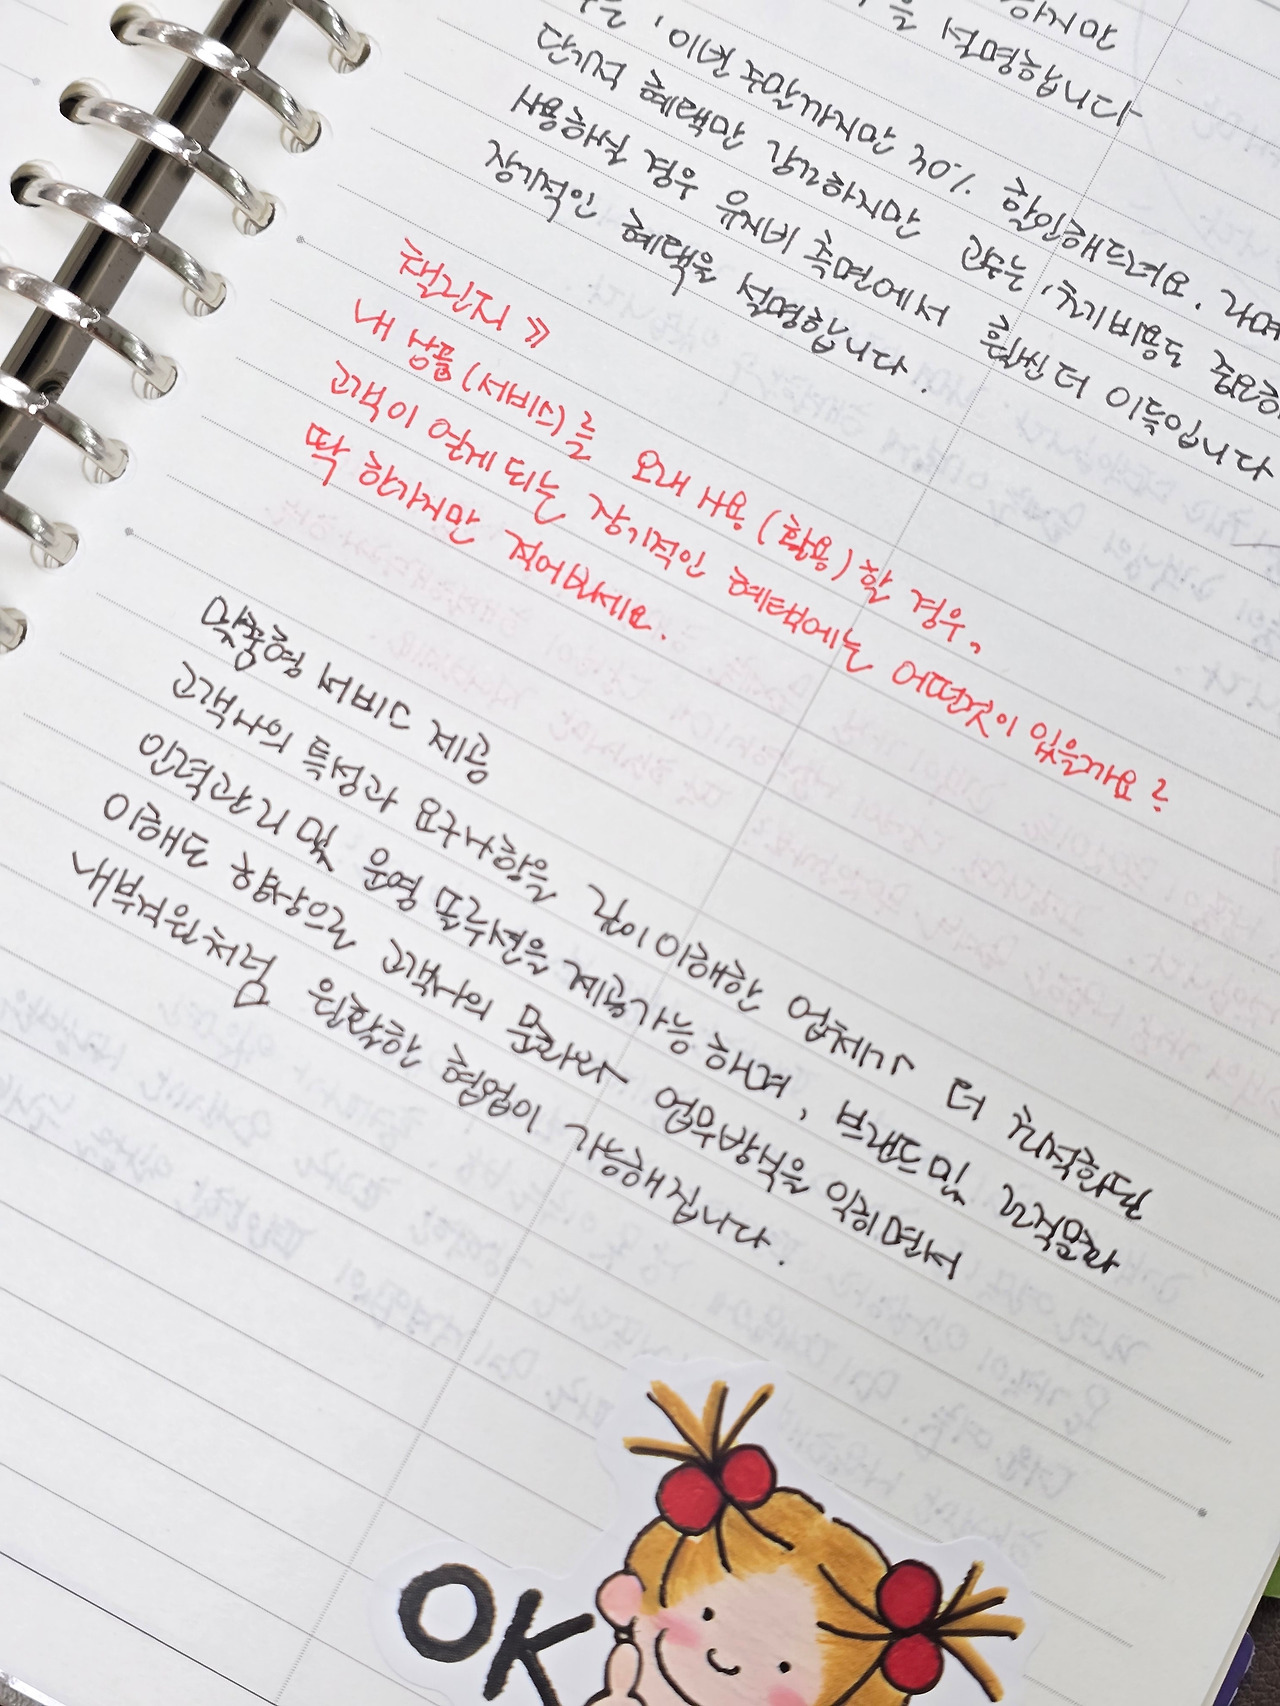 하지만
을 설명합니다
는, 이번 주말까지만 30% 할인해드려요. 라며
단기적 혜택만 강조하지만 고수는, 초기비용도 중요하
사용하실 경우 유지비 측면에서 훨씬 더 이득입니다
장기적인 혜택을 설명합니다.
챌린지 》
내 상품(서비스)를 오래 사용(활용)할 경우,
고객이 얻게 되는 장기적인 혜택에는 어떤것이 있을까요?
딱 한가지만 적어보세요.
맞춤형 서비스 제공
고객사의 특성과 요구사항을 깊이 이해한 업체가 더 최적화된
인력관리 및 운영 솔루션을 제공가능 하며, 브랜드 및 조직문화
이해도 향상으로 고객사의 문화와 업무방식을 익히면서
내부직원처럼 원활한 협업이 가능해집니다.
OK